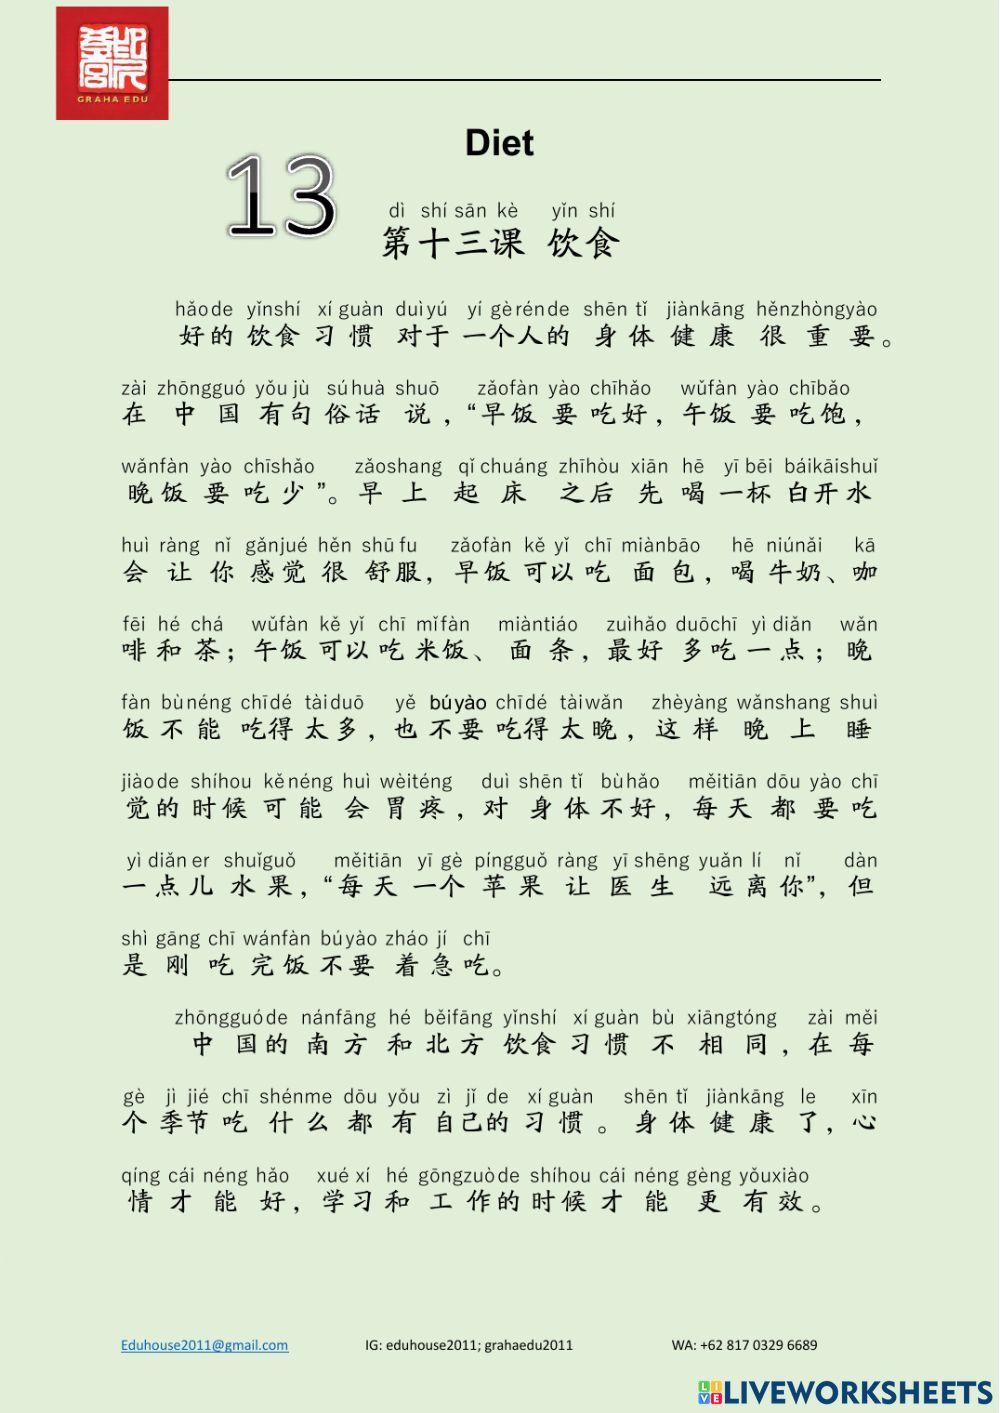 GRAHA EDU
Diet
13
dì shí sān kè yǐn shí
第十三课 饮食
hǎo de yǐnshí xí guàn duì yú yí gè rén de shēn tǐ jiànkāng hěnzhòngyào
好的饮食习惯对于一个人的身体健康很重要。
zài zhōngguó yǒu jù sú huà shuō zǎofàn yào chīhǎo wǔfàn yào chībǎo
在中国有句俗话说，“早饭要吃好，午饭要吃饱，
wǎnfàn yào chīshǎo zǎoshang qǐ chuáng zhīhòu xiān hē yī bēi báikāishuǐ
晚饭要吃少”。早上起床之后先喝一杯白开水
huì ràng nǐ gǎnjué hěn shū fu zǎofàn kě yǐ chī miànbāo hē niúnǎi kā
会让你感觉很舒服，早饭可以吃面包，喝牛奶、咖
fēi hé chá wǔfàn kě yǐ chī mǐfàn miàntiáo zuìhǎo duōchī yì diǎn wǎn
啡和茶；午饭可以吃米饭、面条，最好多吃一点；晚
fàn bù néng chī dé tài duō yě búyào chī dé tài wǎn zhèyàng wǎnshang shuì
饭不能吃得太多，也不要吃得太晚，这样晚上睡
jiào de shíhou kě néng huì wèiténg duì shēn tǐ bù hǎo měitiān dōu yào chī
觉的时候可能会胃疼，对身体不好，每天都要吃
yì diǎn er shuǐguǒ měitiān yī gè píngguǒ ràng yī shēng yuǎn lí nǐ dàn
一点儿水果，“每天一个苹果让医生远离你”，但
shì gāng chī wánfàn búyào zháo jí chī
是刚吃完饭不要着急吃。
zhōngguó de nánfāng hé běifāng yǐnshí xí guàn bù xiāngtóng zài měi
中国的南方和北方饮食习惯不相同，在每
gè jì jié chī shénme dōu yǒu zì jǐ de xí guàn shēn tǐ jiànkāng le xīn
个季节吃什么都有自己的习惯。身体健康了，心
qíng cái néng hǎo xué xí hé gōngzuò de shíhou cái néng gèng yǒuxiào
情才能好，学习和工作的时候才能更有效。
Eduhouse2011@gmail.com IG: eduhouse2011; grahaedu2011 WA: +62 817 0329 6689
LIVE LIVEWORKSHEETS